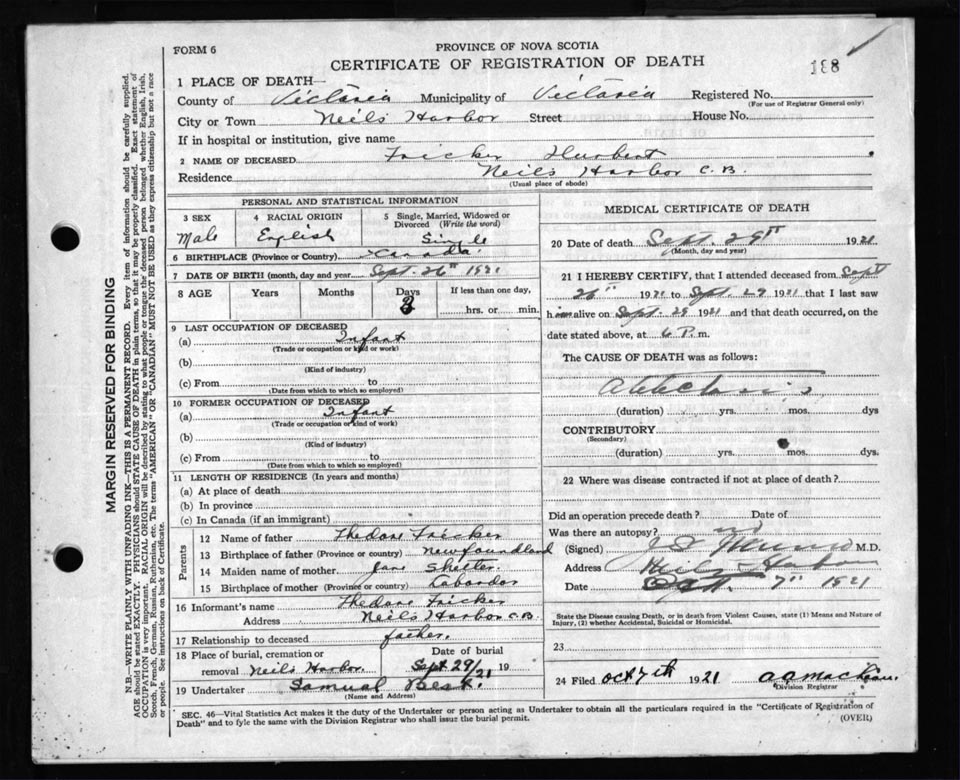 FORM 6
PROVINCE OF NOVA SCOTIA
CERTIFICATE OF REGISTRATION OF DEATH
188
1 PLACE OF DEATH—
County of Victoria Municipality of Victoria Registered No.
(For use of Registrar General only)
City or Town Neils Harbor Street House No.
If in hospital or institution, give name
2 NAME OF DECEASED Fricker Hurbert
Residence Neils Harbor C.B.
(Usual place of abode)
PERSONAL AND STATISTICAL INFORMATION
3 SEX 4 RACIAL ORIGIN 5 Single, Married, Widowed or Divorced (Write the word)
Male English Single
6 BIRTHPLACE (Province or Country) Canada
7 DATE OF BIRTH (month, day and year) Sept. 26th 1921
8 AGE Years Months Days If less than one day,
3 hrs. or min.
9 LAST OCCUPATION OF DECEASED
(a) Infant
(Trade or occupation or kind of work)
(b)
(Kind of industry)
(c) From to
(Date from which to which so employed)
10 FORMER OCCUPATION OF DECEASED
(a) Infant
(Trade or occupation or kind of work)
(b)
(Kind of industry)
(c) From to
(Date from which to which so employed)
11 LENGTH OF RESIDENCE (In years and months)
(a) At place of death
(b) In province
(c) In Canada (if an immigrant)
Parents
12 Name of father Thedore Fricker
13 Birthplace of father (Province or country) Newfoundland
14 Maiden name of mother Jane
15 Birthplace of mother (Province or country) Labardor
16 Informant's name Thedore Fricker
Address Neils Harbor C.B.
17 Relationship to deceased father.
18 Place of burial, cremation or Date of burial
removal Neils Harbor Sept 29/21 19
19 Undertaker Samual Best.
(Name and Address)
MEDICAL CERTIFICATE OF DEATH
20 Date of death Sept. 29th 1921
(Month, day and year)
21 I HEREBY CERTIFY, that I attended deceased from Sept
26th 1921 to Sept. 29 1921 that I last saw
him alive on Sept. 29 1921 and that death occurred, on the
date stated above, at 6 P.m.
The CAUSE OF DEATH was as follows:
(duration) yrs. mos. dys
CONTRIBUTORY
(Secondary)
(duration) yrs. mos. dys
22 Where was disease contracted if not at place of death?
Did an operation precede death? Date of
Was there an autopsy? no
(Signed) M.D.
Address Neils Harbour
Date Oct. 7th 1921
State the Disease causing Death, or in death from Violent Causes, state (1) Means and Nature of
Injury, (2) whether Accidental, Suicidal or Homicidal.
23
24 Filed Oct 7th 1921
Division Registrar
SEC. 46—Vital Statistics Act makes it the duty of the Undertaker or person acting as Undertaker to obtain all the particulars required in the "Certificate of Registration of
Death" and to fyle the same with the Division Registrar who shall issue the burial permit.
(OVER)
MARGIN RESERVED FOR BINDING
N.B.—WRITE PLAINLY WITH UNFADING INK—THIS IS A PERMANENT RECORD. Every item of information should be carefully supplied.
AGE should be stated EXACTLY. PHYSICIANS should STATE CAUSE OF DEATH in plain terms, so that it may be properly classified. Exact statement of
OCCUPATION is very important. RACIAL ORIGIN will be described by stating to what people or tongue the deceased person belonged whether English, Irish,
Scotch, French, German, Russian, Ruthenian, etc. The terms "AMERICAN" OR "CANADIAN" MUST NOT BE USED as they express citizenship but not a race
or people. See instructions on back of Certificate.